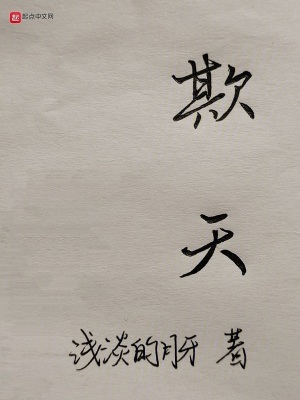 起点中文网
欺
天
浅淡的月牙 著